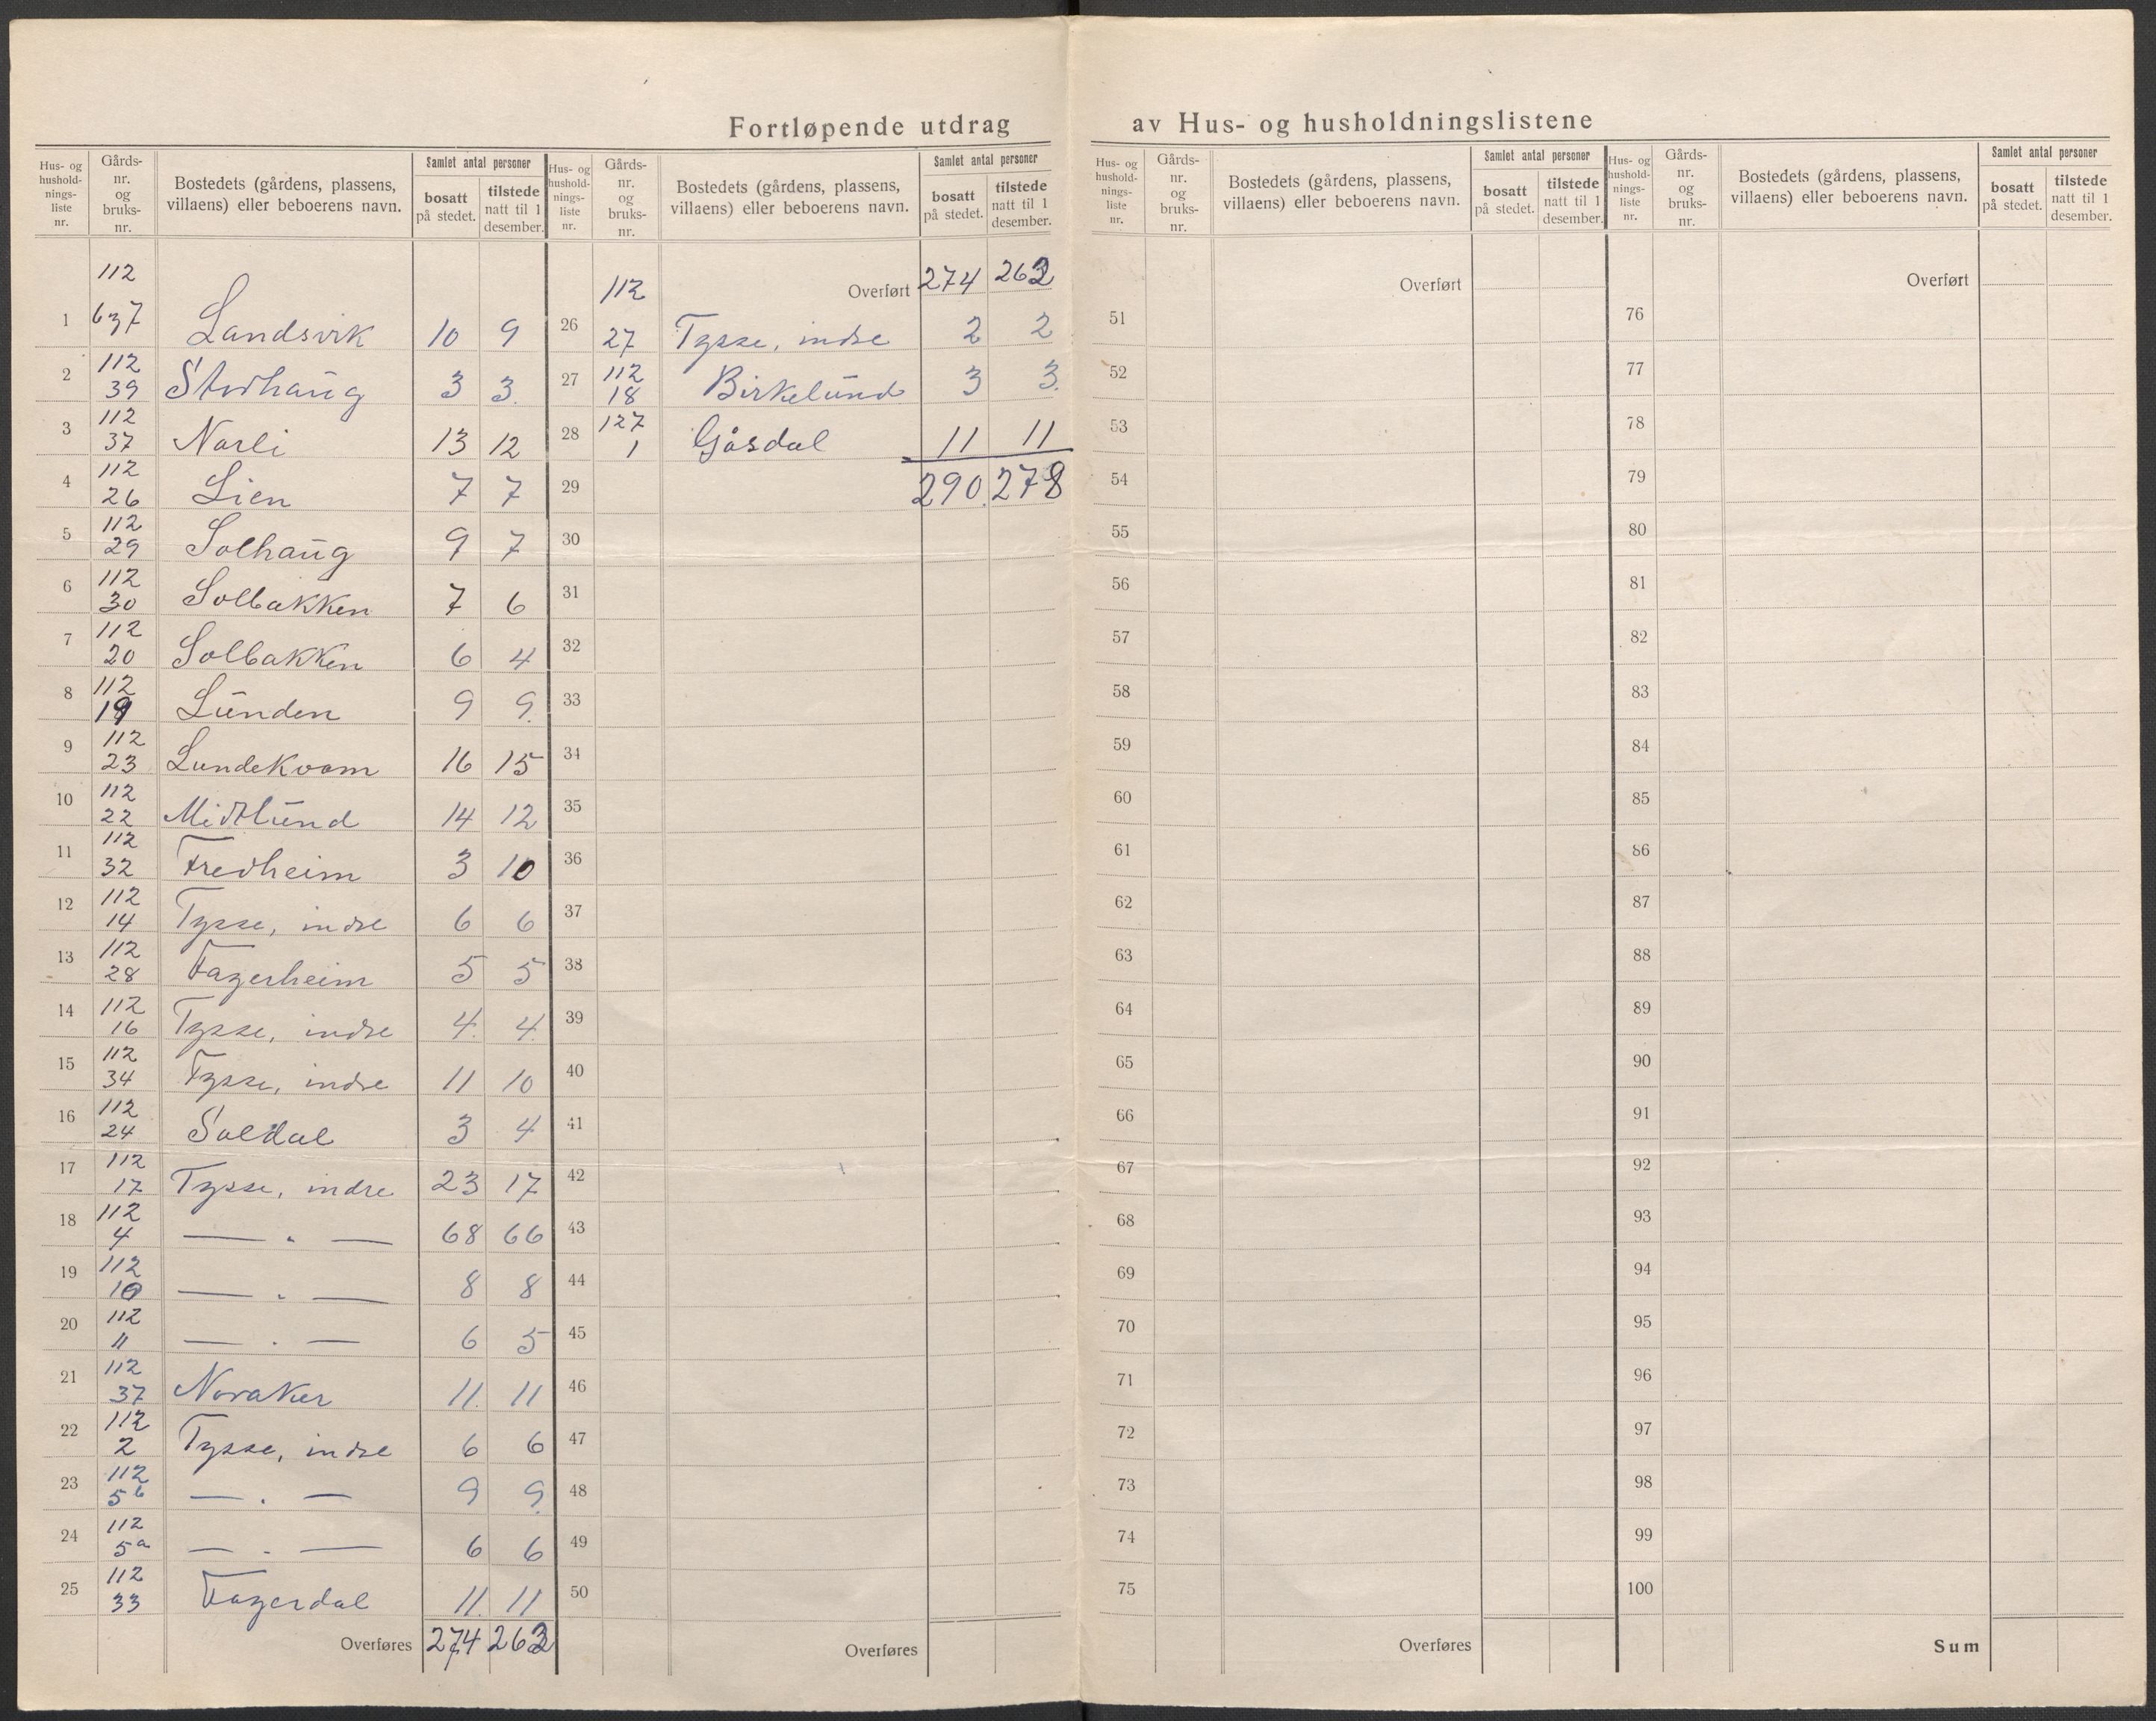 Fortløpende utdrag av Hus- og husholdningslistene
Hus- og husholdnings-liste nr. | Gårds-nr. og bruks-nr. | Bostedets (gårdens, plassens, villaens) eller beboerens navn. | Samlet antal personer | bosatt på stedet. | tilstede natt til 1 desember.
1 112 637 Landsvik 10 9
2 112 39 Stordhaug 3 3.
3 112 37 Narli 13 12
4 112 26 Lien 7 7
5 112 29 Solhaug 9 7
6 112 30 Solbakken 7 6
7 112 20 Solbakken 6 4
8 112 19 Lunden 9 9.
9 112 23 Lundekvam 16 15
10 112 22 Midtlund 14 12
11 112 32 Fredheim 3 10
12 112 14 Tysse, indre 6 6
13 112 28 Fagerheim 5 5
14 112 16 Tysse, indre 4. 4.
15 112 34 Tysse, indre 11 10
16 112 24 Soldal 3 4
17 112 17 Tysse, indre 23 17
18 112 4 — „ — 68 66
19 112 10 — „ — 8 8
20 112 11 — . — 6 5
21 112 37 Noraker 11. 11
22 112 2 Tysse, indre 6 6
23 112 5b — . — 9 9.
24 112 5a — . — 6 6
25 112 33 Fagerdal 11. 11
Overføres 274 262
Hus- og husholdnings-liste nr. | Gårds-nr. og bruks-nr. | Bostedets (gårdens, plassens, villaens) eller beboerens navn. | Samlet antal personer | bosatt på stedet. | tilstede natt til 1 desember.
Overført 274 262
26 112 27 Tysse, indre 2 2
27 112 18 Birkelund 3 3.
28 127 1 Gåsdal 11 11
29 290. 278
30
31
32
33
34
35
36
37
38
39
40
41
42
43
44
45
46
47
48
49
50
Overføres
Hus- og husholdnings-liste nr. | Gårds-nr. og bruks-nr. | Bostedets (gårdens, plassens, villaens) eller beboerens navn. | Samlet antal personer | bosatt på stedet. | tilstede natt til 1 desember.
Overført
51
52
53
54
55
56
57
58
59
60
61
62
63
64
65
66
67
68
69
70
71
72
73
74
75
Overføres
Hus- og husholdnings-liste nr. | Gårds-nr. og bruks-nr. | Bostedets (gårdens, plassens, villaens) eller beboerens navn. | Samlet antal personer | bosatt på stedet. | tilstede natt til 1 desember.
Overført
76
77
78
79
80
81
82
83
84
85
86
87
88
89
90
91
92
93
94
95
96
97
98
99
100
Sum